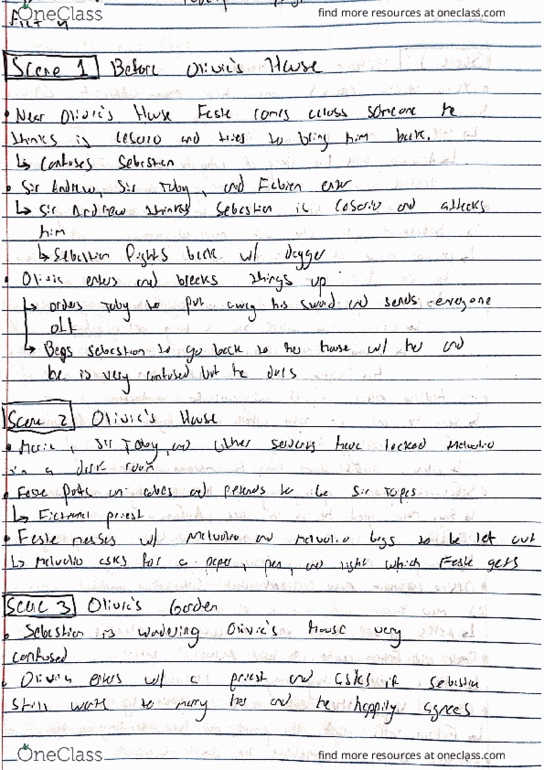 OneClass
find more resources at oneclass.com
Act 4
Scene 1 Before Olivia's House
• Near Olivia's House Feste comes across someone he
thinks is Cesario and tries to bring him back.
↳ Confuses Sebastian
• Sir Andrew, Sir Toby, and Fabian enter
↳ Sir Andrew thinks Sebastian is Cesario and attacks
him
↳ Sebastian fights back w/ dagger
• Olivia enters and breaks things up
↳ orders Toby to put away his sword and sends everyone
off
↳ Begs Sebastian to go back to her house w/ her and
he is very confused but he does
Scene 2 Olivia's House
• Maria, Sir Toby, and other servants have locked Malvolio
in a dark room
• Feste puts on robes and pretends to be Sir Topas
↳ Fictional priest
• Feste messes w/ Malvolio and Malvolio begs to be let out
↳ Malvolio asks for a paper, pen, and light which Feste gets
Scene 3 Olivia's Garden
• Sebastian is wandering Olivia's House very
confused
• Olivia enters w/ a priest and asks if Sebastian
still wants to marry her and he happily agrees
OneClass
find more resources at oneclass.com